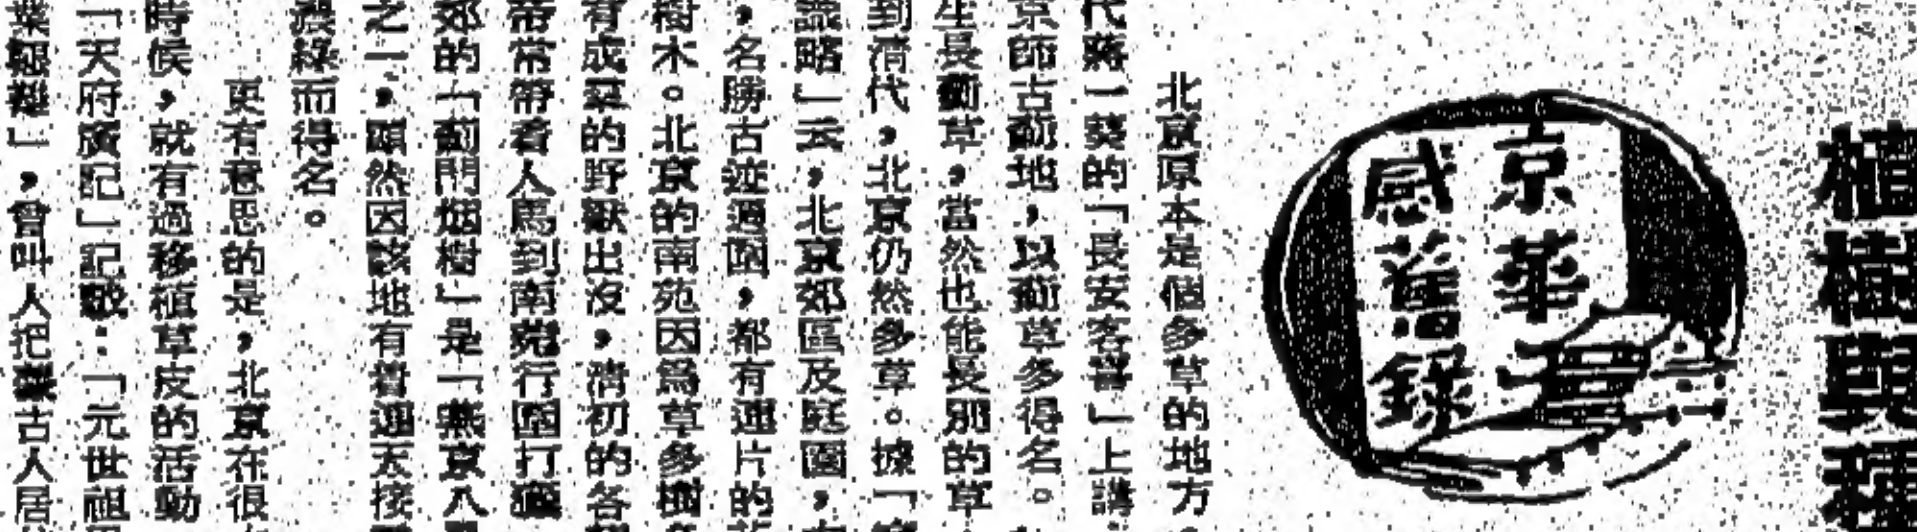 植樹與種
京華
感舊錄
北京原本是個多草的地方
代蔣一葵的「長安客話」上講
京師古薊地，以薊草多得名。
生長薊草，當然也能長別的草
到清代，北京仍然多草。據「
識略」云，北京郊區及庭園，
，名勝古迹週圍，都有連片的
樹木。北京的南苑因爲草多樹
有成羣的野獸出沒，清初的各
帝常帶着人馬到南苑行圍打獵
郊的「薊門烟樹」是「燕京八
之一，顯然因該地有着連天接
濃綠而得名。
更有意思的是，北京在很
時候，就有過移植草皮的活動
「天府廣記」記載：「元世祖
業艱難」，曾叫人把蒙古人居